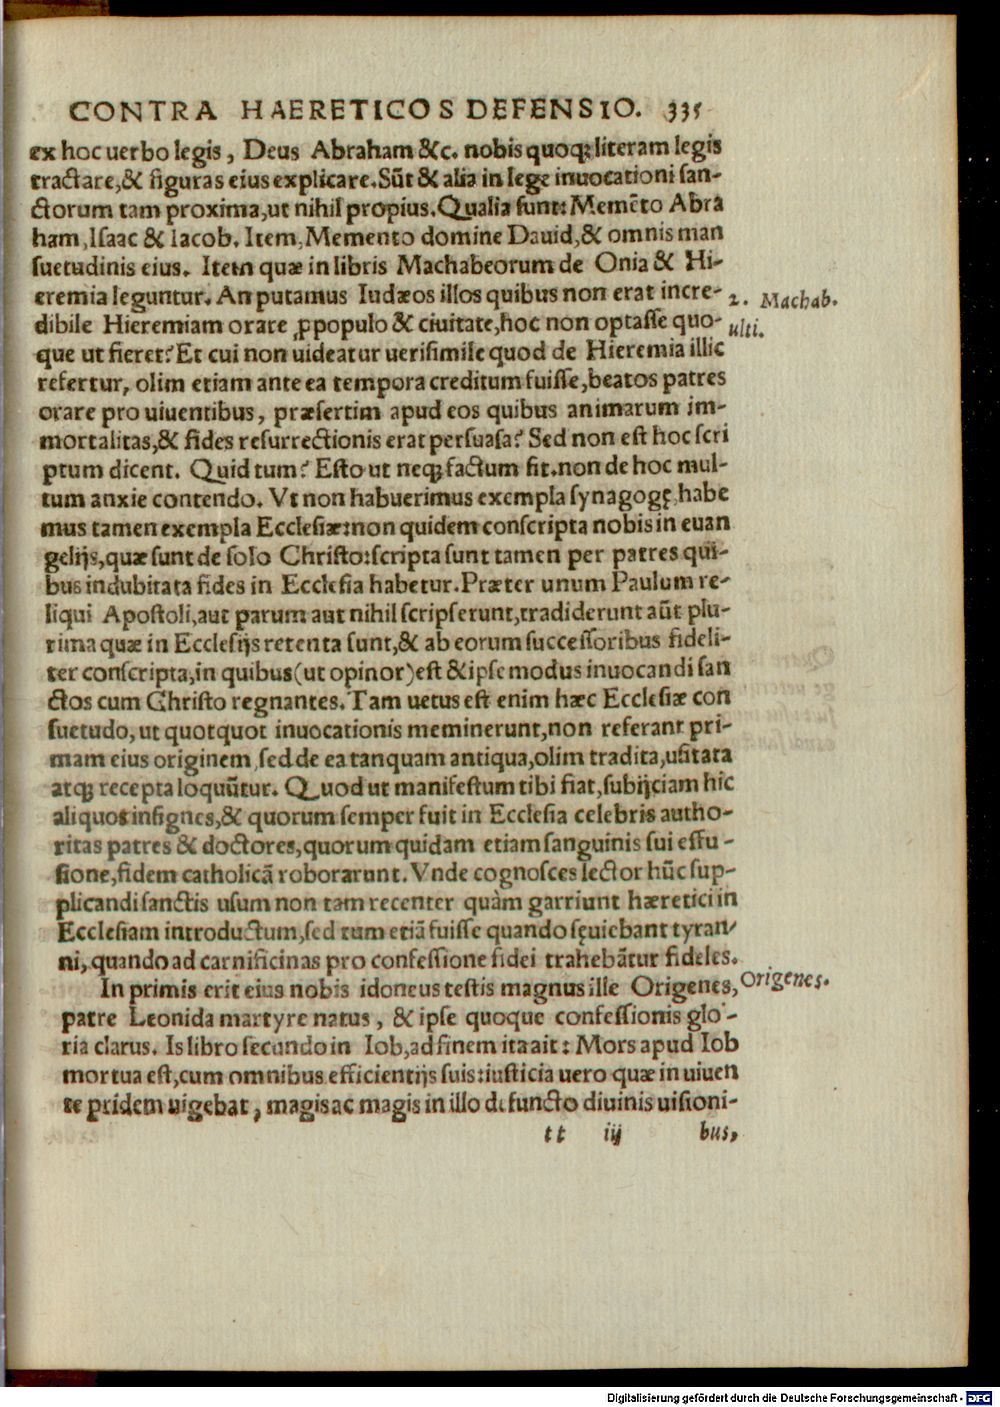 CONTRA HAERETICOS DEFENSIO. 335
ex hoc uerbo legis, Deus Abraham &c. nobis quoqꝫ literam legis
tractare, & figuras eius explicare. Sūt & alia in lege inuocationi san-
ctorum tam proxima, ut nihil propius. Qualia sunt: Memēto Abra
ham, Isaac & Iacob. Item, Memento domine Dauid, & omnis man
suetudinis eius. Item quæ in libris Machabeorum de Onia & Hi-
eremia leguntur. An putamus Iudæos illos quibus non erat incre-
2. Machab.
dibile Hieremiam orare ꝓ populo & ciuitate, hoc non optasse quo-
ulti.
que ut fieret? Et cui non uideatur uerisimile quod de Hieremia illic
refertur, olim etiam ante ea tempora creditum fuisse, beatos patres
orare pro uiuentibus, præsertim apud eos quibus animarum im-
mortalitas, & fides resurrectionis erat persuasa? Sed non est hoc scri
ptum dicent. Quid tum? Esto ut neqꝫ factum sit. non de hoc mul-
tum anxie contendo. Vt non habuerimus exempla synagogę, habe
mus tamen exempla Ecclesiæ: non quidem conscripta nobis in euan
gelijs, quæ sunt de solo Christo: scripta sunt tamen per patres qui-
bus indubitata fides in Ecclesia habetur. Præter unum Paulum re-
liqui Apostoli, aut parum aut nihil scripserunt, tradiderunt aūt plu-
rima quæ in Ecclesijs retenta sunt, & ab eorum successoribus fideli-
ter conscripta, in quibus (ut opinor) est & ipse modus inuocandi san
ctos cum Christo regnantes. Tam uetus est enim hæc Ecclesiæ con
suetudo, ut quotquot inuocationis meminerunt, non referant pri-
mam eius originem, sed de ea tanquam antiqua, olim tradita, usitata
atqꝫ recepta loquūtur. Quod ut manifestum tibi fiat, subijciam hic
aliquot insignes, & quorum semper fuit in Ecclesia celebris autho-
ritas patres & doctores, quorum quidam etiam sanguinis sui effu-
sione, fidem catholicā roborarunt. Vnde cognosces lector hūc sup-
plicandi sanctis usum non tam recenter quàm garriunt hæretici in
Ecclesiam introductum, sed tum etiā fuisse quando sęuiebant tyran-
ni, quando ad carnificinas pro confessione fidei trahebātur fideles.
In primis erit eius nobis idoneus testis magnus ille Origenes,
Origenes.
patre Leonida martyre natus, & ipse quoque confessionis glo-
ria clarus. Is libro secundo in Iob, ad finem ita ait: Mors apud Iob
mortua est, cum omnibus efficientijs suis: iusticia uero quæ in uiuen
te pridem uigebat, magis ac magis in illo defuncto diuinis uisioni-
tt iij bus,
Digitalisierung gefördert durch die Deutsche Forschungsgemeinschaft - DFG